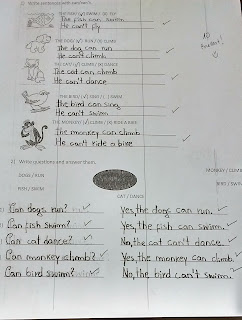 1) Write sentences with can/can't.
The fish can swim.
He can't fly.
THE DOG/ (√) RUN / (X) CLIMB
The dog can run
He can't climb.
THE CAT/ (√) CLIMB / (X) DANCE
The cat can climb
He can't dance.
THE BIRD / (√) SING / (X) SWIM
The bird can sing
He can't swim
THE MONKEY/ (√) CLIMB / (X) RIDE A BIKE
The monkey can climb.
He can't ride a bike
2) Write questions and answer them.
DOGS / RUN
MONKEY / CLIMB
FISH / SWIM
BIRD / SWIM
CAT / DANCE
Can dogs run? Yes, the dogs can run.
Can fish swim? Yes, the fish can swim.
Can cat dance? No, the cat can't dance.
Can monkey climb? Yes, the monkey can climb.
Can bird swim? No, the bird can't swim.